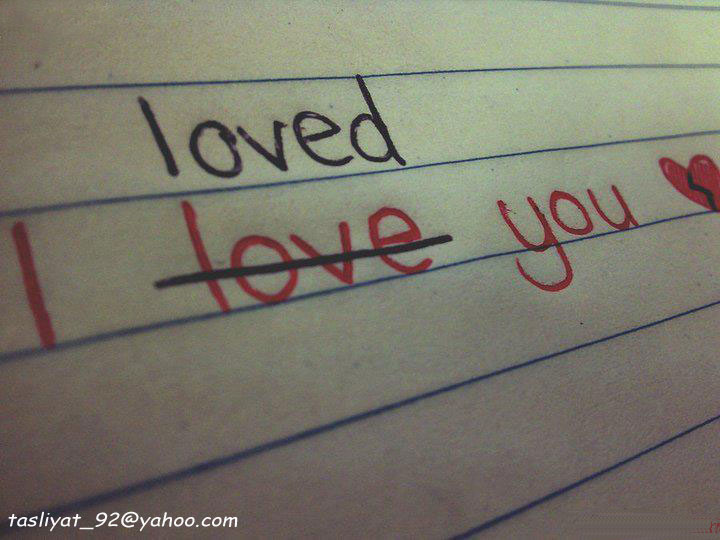 loved
I love you
tasliyat_92@yahoo.com